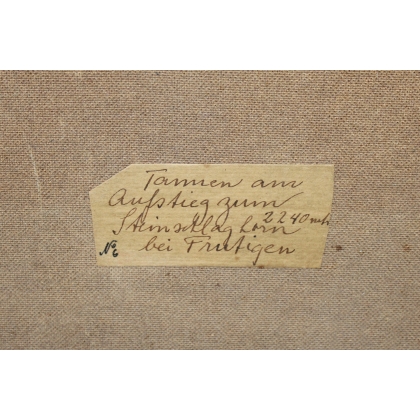 Tannen am
Aufstieg zum
Steinschlaghorn 2240 mtr
bei Frutigen
No 6